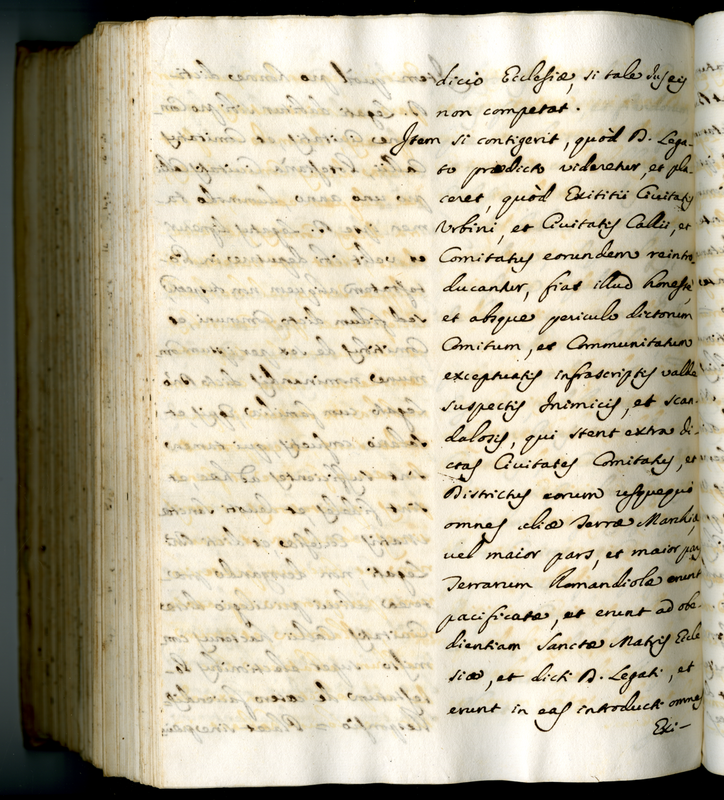 dicio Ecclesiæ, si tale Jus eis
non competat.
Item si contigerit, quòd D. Lega-
to prædicto videretur, et pla-
ceret, quòd Exititii Civitatis
Vrbini, et Civitatis Callii, et
Comitatus eorundem reintro
ducantur, fiat illud honestè,
et absque periculo dictorum
Comitum, et Communitatum
exceptuatis infrascriptis valde
suspectis Inimicis, et scan-
dalosis, qui stent extra di-
ctas Civitates Comitatus, et
Districtus eorum usquequo
omnes aliæ Terræ Marchiæ,
vel maior pars, et maior pars
Terrarum Romandiolæ erunt
pacificatæ, et erunt ad obe-
dientiam Sanctæ Matris Eccle
siæ, et dicti D. Legati, et
erunt in eas introducti omnes
Exi-